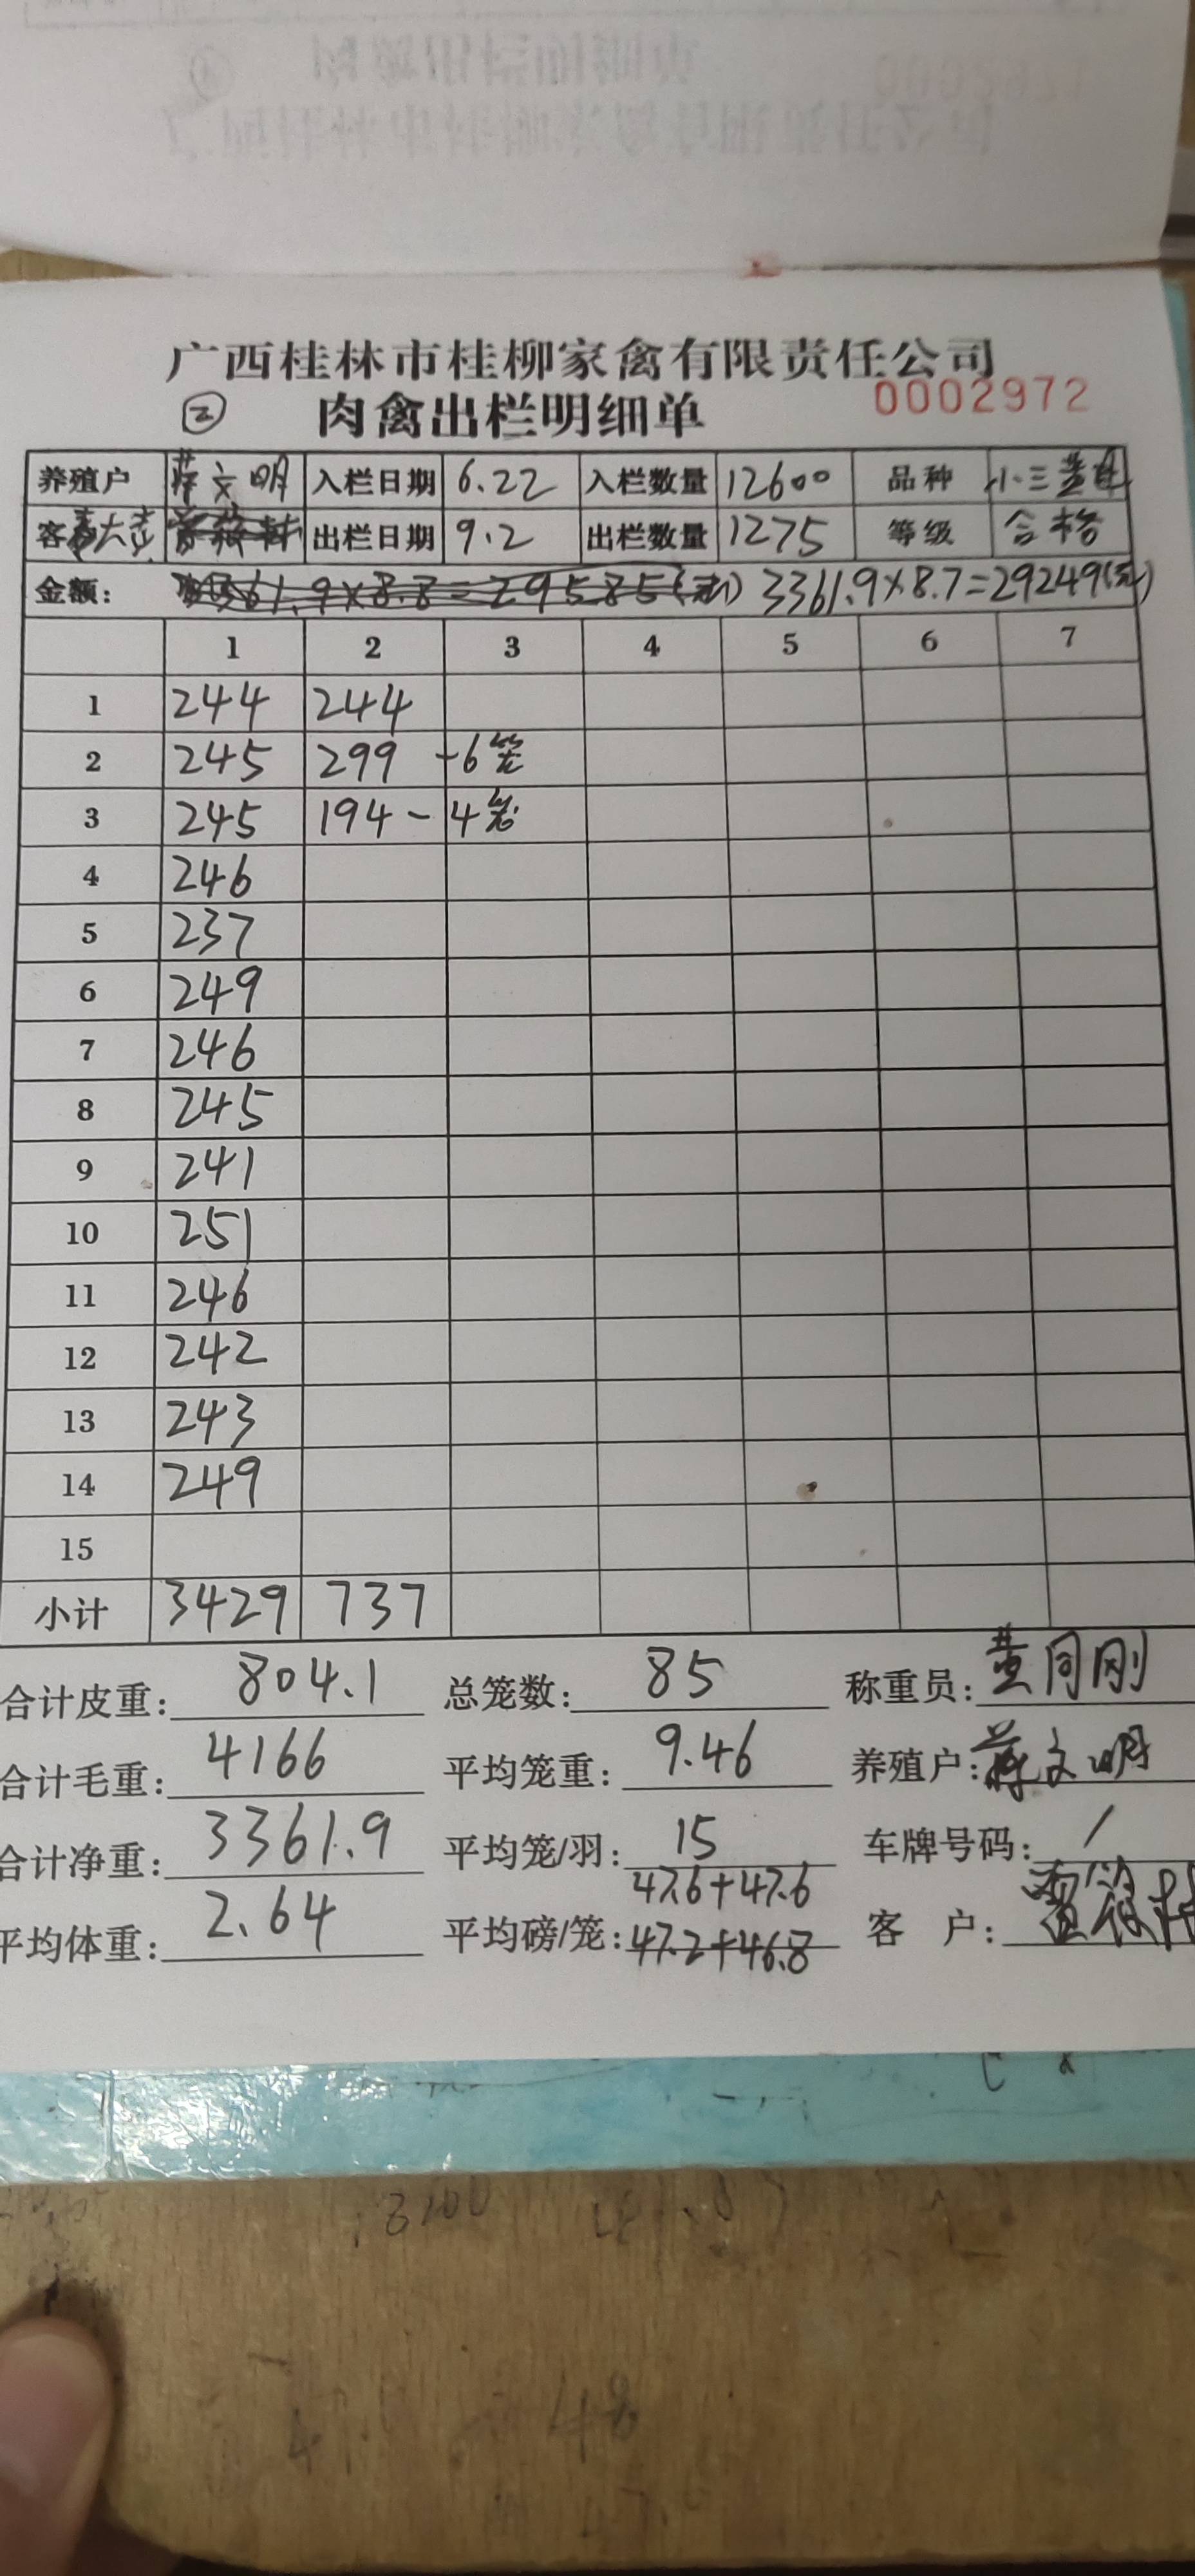 广西桂林市桂柳家禽有限责任公司
② 肉禽出栏明细单 0002972
养殖户 蒋文明 入栏日期 6.22 入栏数量 12600 品种 小三黄母
客 出栏日期 9.2 出栏数量 1275 等级 合格
金额: 3361.9×8.8=29585(元) 3361.9×8.7=29249(元)
1 2 3 4 5 6 7
1 244 244
2 245 299 -6笼
3 245 194 - 4笼
4 246
5 237
6 249
7 246
8 245
9 241
10 251
11 246
12 242
13 243
14 249
15
小计 3429 737
合计皮重: 804.1 总笼数: 85 称重员: 黄同刚
合计毛重: 4166 平均笼重: 9.46 养殖户: 蒋文明
合计净重: 3361.9 平均笼/羽: 15 车牌号码: /
47.6+47.6
平均体重: 2.64 平均磅/笼: 47.2+46.8 客 户: